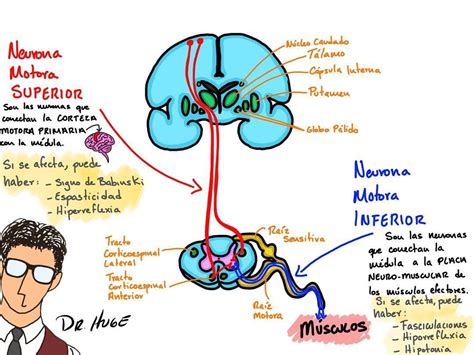 Neurona
Motora
SUPERIOR
Son las neuronas que
conectan la CORTEZA
MOTORA PRIMARIA
con la médula.
Si se afecta, puede
haber:
- Signo de Babinski
- Espasticidad
- Hiperreflexia
Núcleo Caudado
Tálamo
Cápsula Interna
Putamen
Globo Pálido
Neurona
Motora
INFERIOR
Son las neuronas
que conectan la
médula a la PLACA
NEURO-MUSCULAR de
los músculos efectores.
Si se afecta, puede
haber:
- Fasciculaciones
- Hiporreflexia
- Hipotonía
Raíz
Sensitiva
Tracto
Corticoespinal
Lateral
Tracto
Corticoespinal
Anterior
Raíz
Motora
MÚSCULOS
DR. HUGE